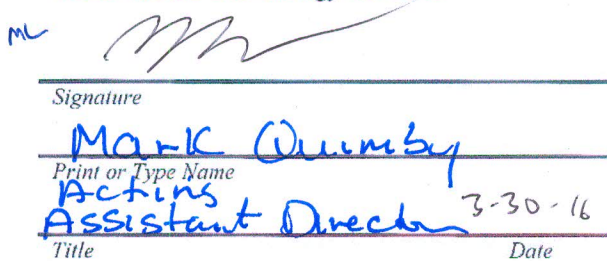 ML
Signature
Mark Quimby
Print or Type Name
Acting
Assistant Director 3-30-16
Title Date